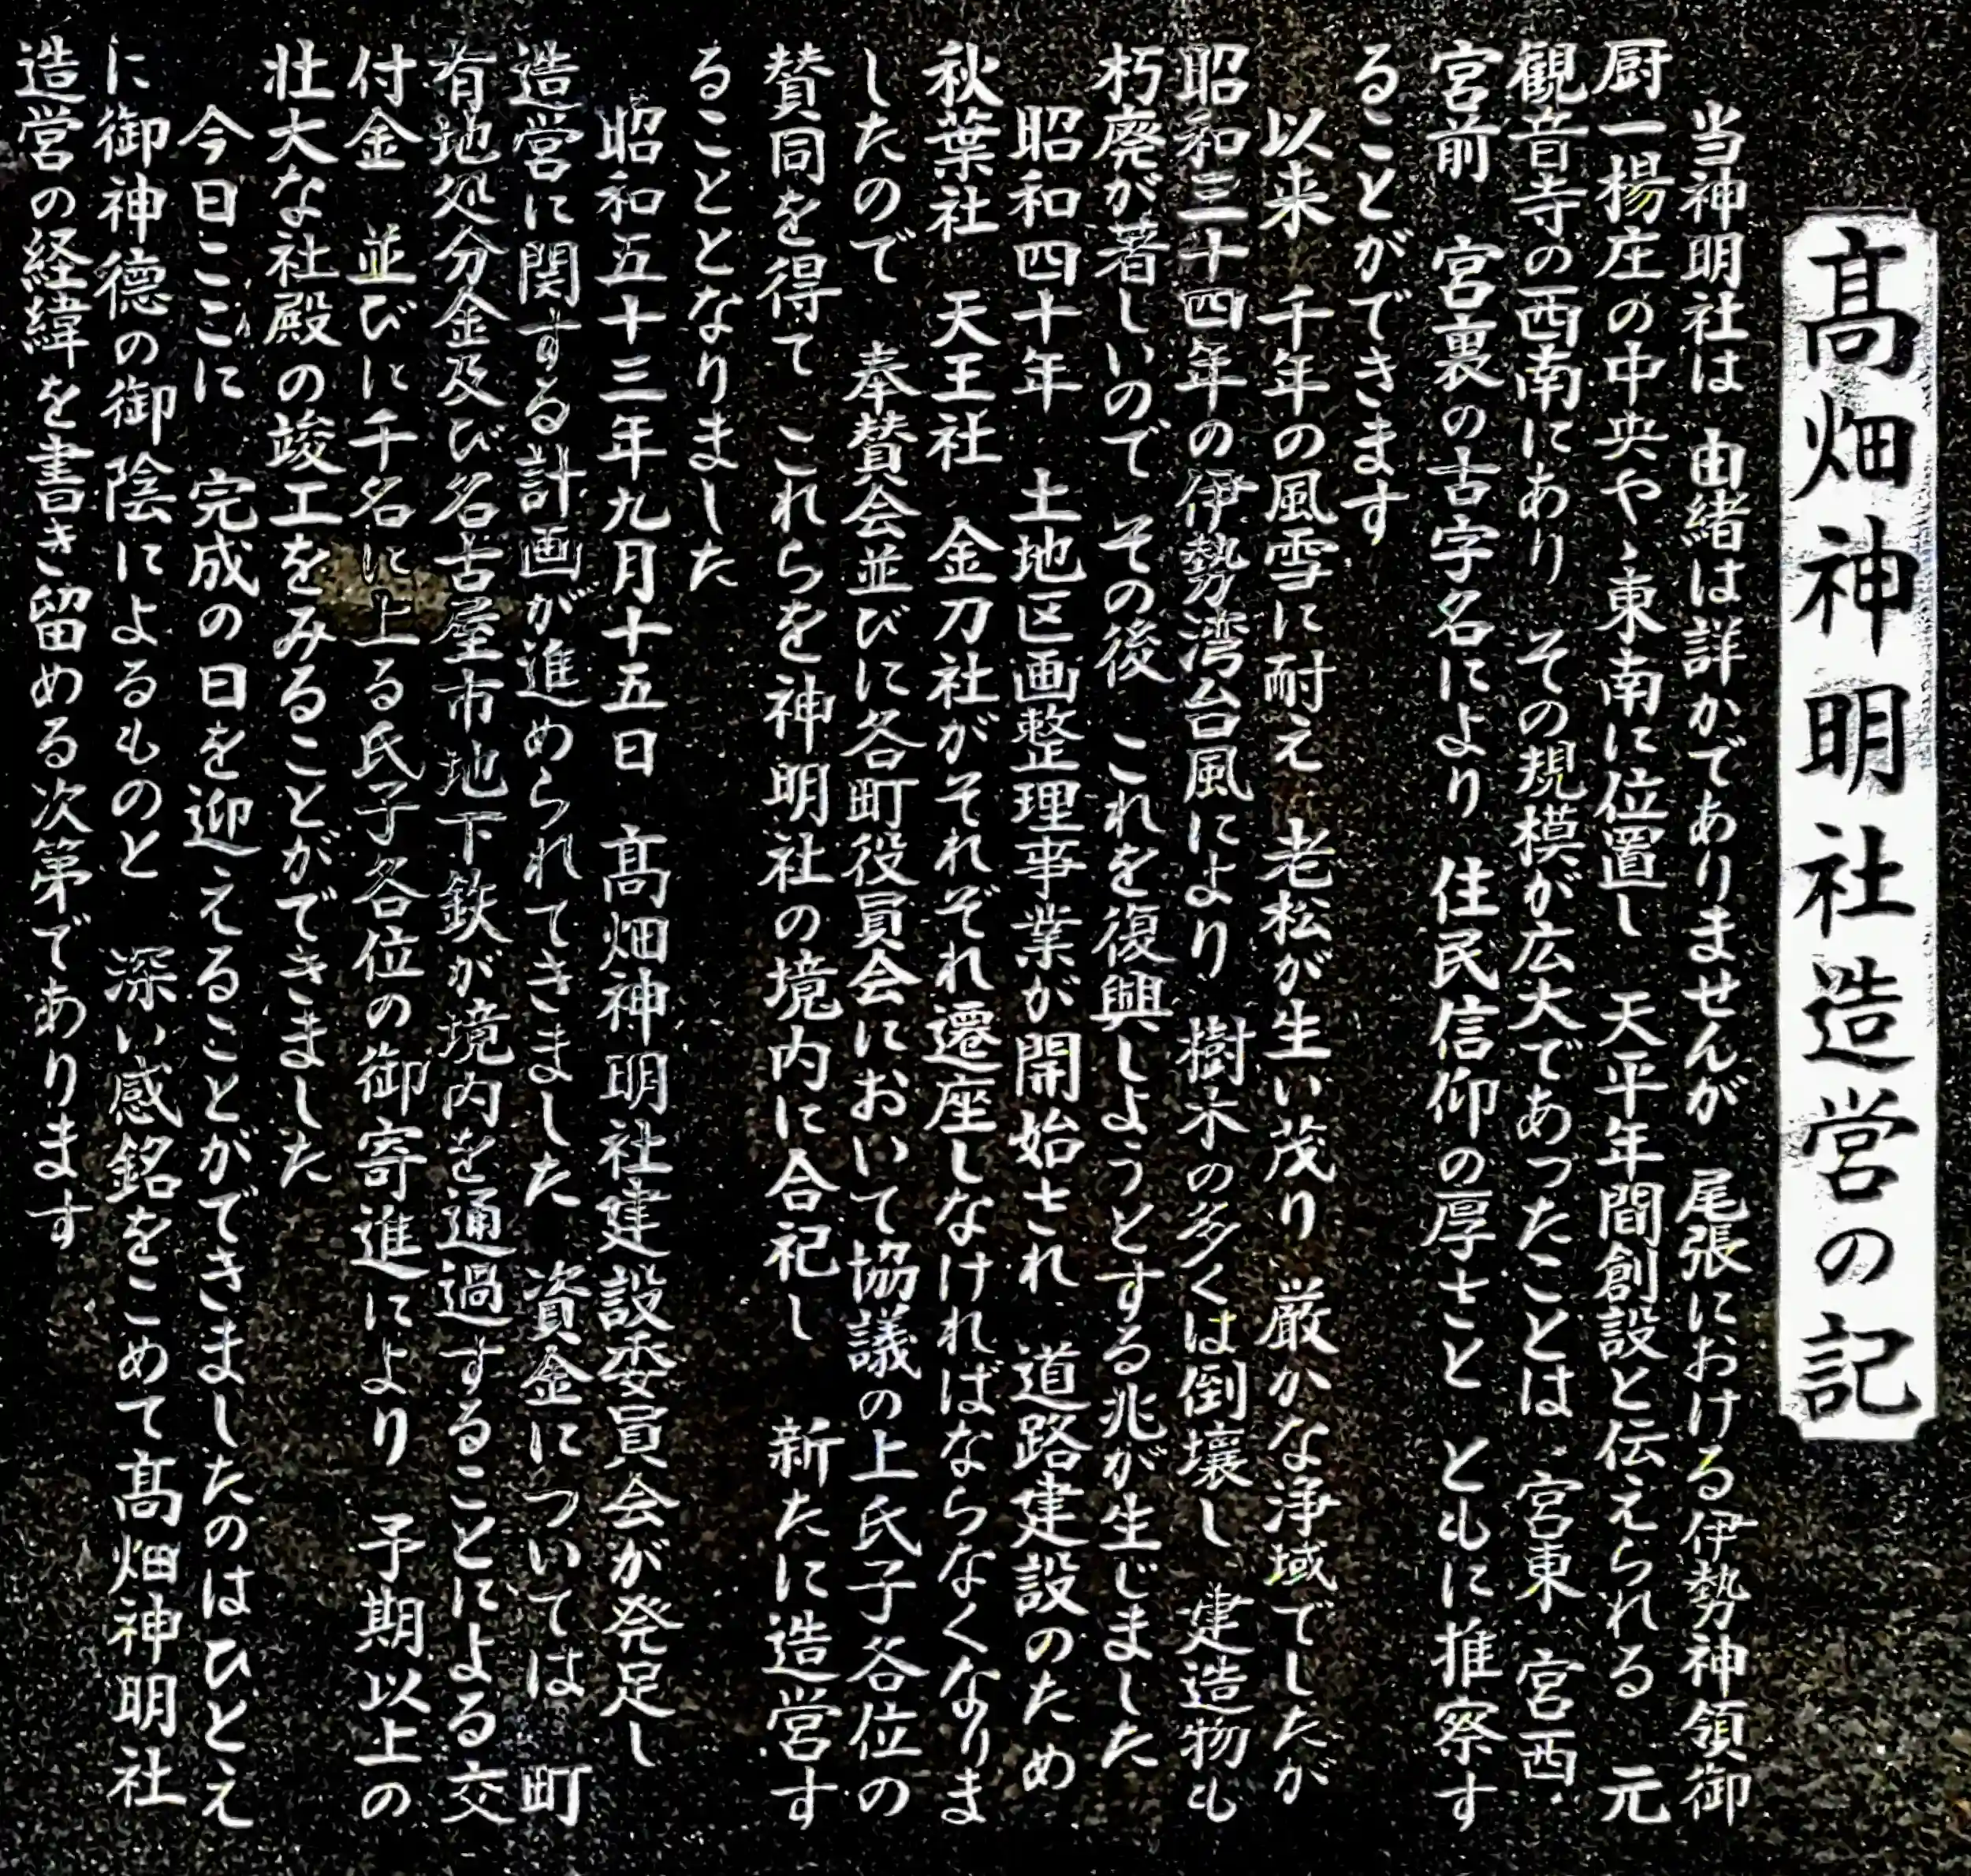 髙畑神明社造営の記
当神明社は　由緒は詳かでありませんが　尾張における伊勢神領御
厨一楊庄の中央やゝ東南に位置し　天平年間創設と伝えられる　元
観音寺の西南にあり　その規模が広大であったことは　宮東　宮西
宮前　宮裏の古字名により　住民信仰の厚さと　ともに推察す
ることができます
以来　千年の風雪に耐え　老松が生い茂り　厳かな浄域でしたが
昭和三十四年の伊勢湾台風により　樹木の多くは倒壊し　建造物も
朽廃が著しいので　その後　これを復興しようとする兆が生じました
昭和四十年　土地区画整理事業が開始され　道路建設のため
秋葉社　天王社　金刀社がそれぞれ遷座しなければならなくなりま
したので　奉賛会並びに各町役員会において協議の上氏子各位の
賛同を得て　これらを神明社の境内に合祀し　新たに造営す
ることとなりました
昭和五十三年九月十五日　髙畑神明社建設委員会が発足し
造営に関する計画が進められてきました　資金については　町
有地処分金及び名古屋市地下鉄が境内を通過することによる交
付金　並びに千名に上る氏子各位の御寄進により　予期以上の
壮大な社殿の竣工をみることができました
今日ここに　完成の日を迎えることができましたのはひとえ
に御神徳の御陰によるものと　深い感銘をこめて髙畑神明社
造営の経緯を書き留める次第であります